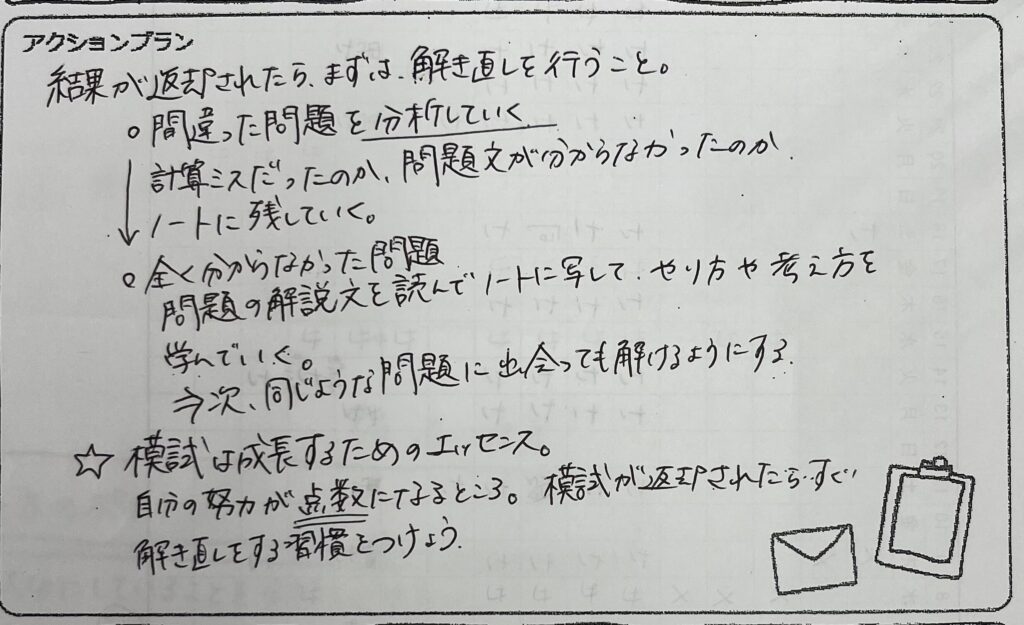 アクションプラン
結果が返却されたら、まずは、解き直しを行うこと。
○ 間違った問題を分析していく
↓ 計算ミスだったのか、問題文が分からなかったのか
ノートに残していく。
○ 全く分からなかった問題
問題の解説文を読んでノートに写して、やり方や考え方を
学んでいく。
⇒次、同じような問題に出会っても解けるようにする。
☆ 模試は成長するためのエッセンス。
自分の努力が点数になるところ。模試が返却されたらすぐ
解き直しをする習慣をつけよう。